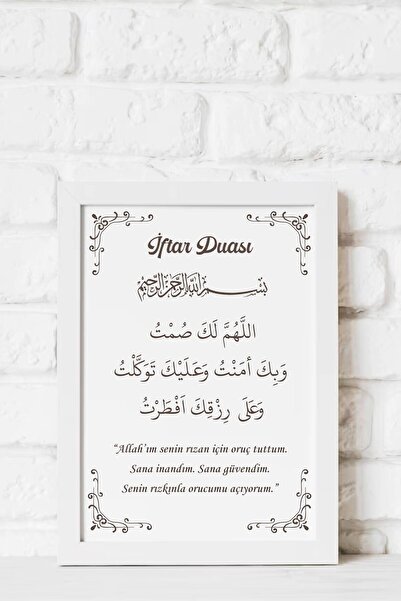 İftar Duası
بِسْمِ اللهِ الرَّحْمٰنِ الرَّحِيْمِ
اَللّٰهُمَّ لَكَ صُمْتُ
وَبِكَ اٰمَنْتُ وَعَلَيْكَ تَوَكَّلْتُ
وَعَلَى رِزْقِكَ اَفْطَرْتُ
“Allah’ım senin rızan için oruç tuttum.
Sana inandım. Sana güvendim.
Senin rızkınla orucumu açıyorum.”